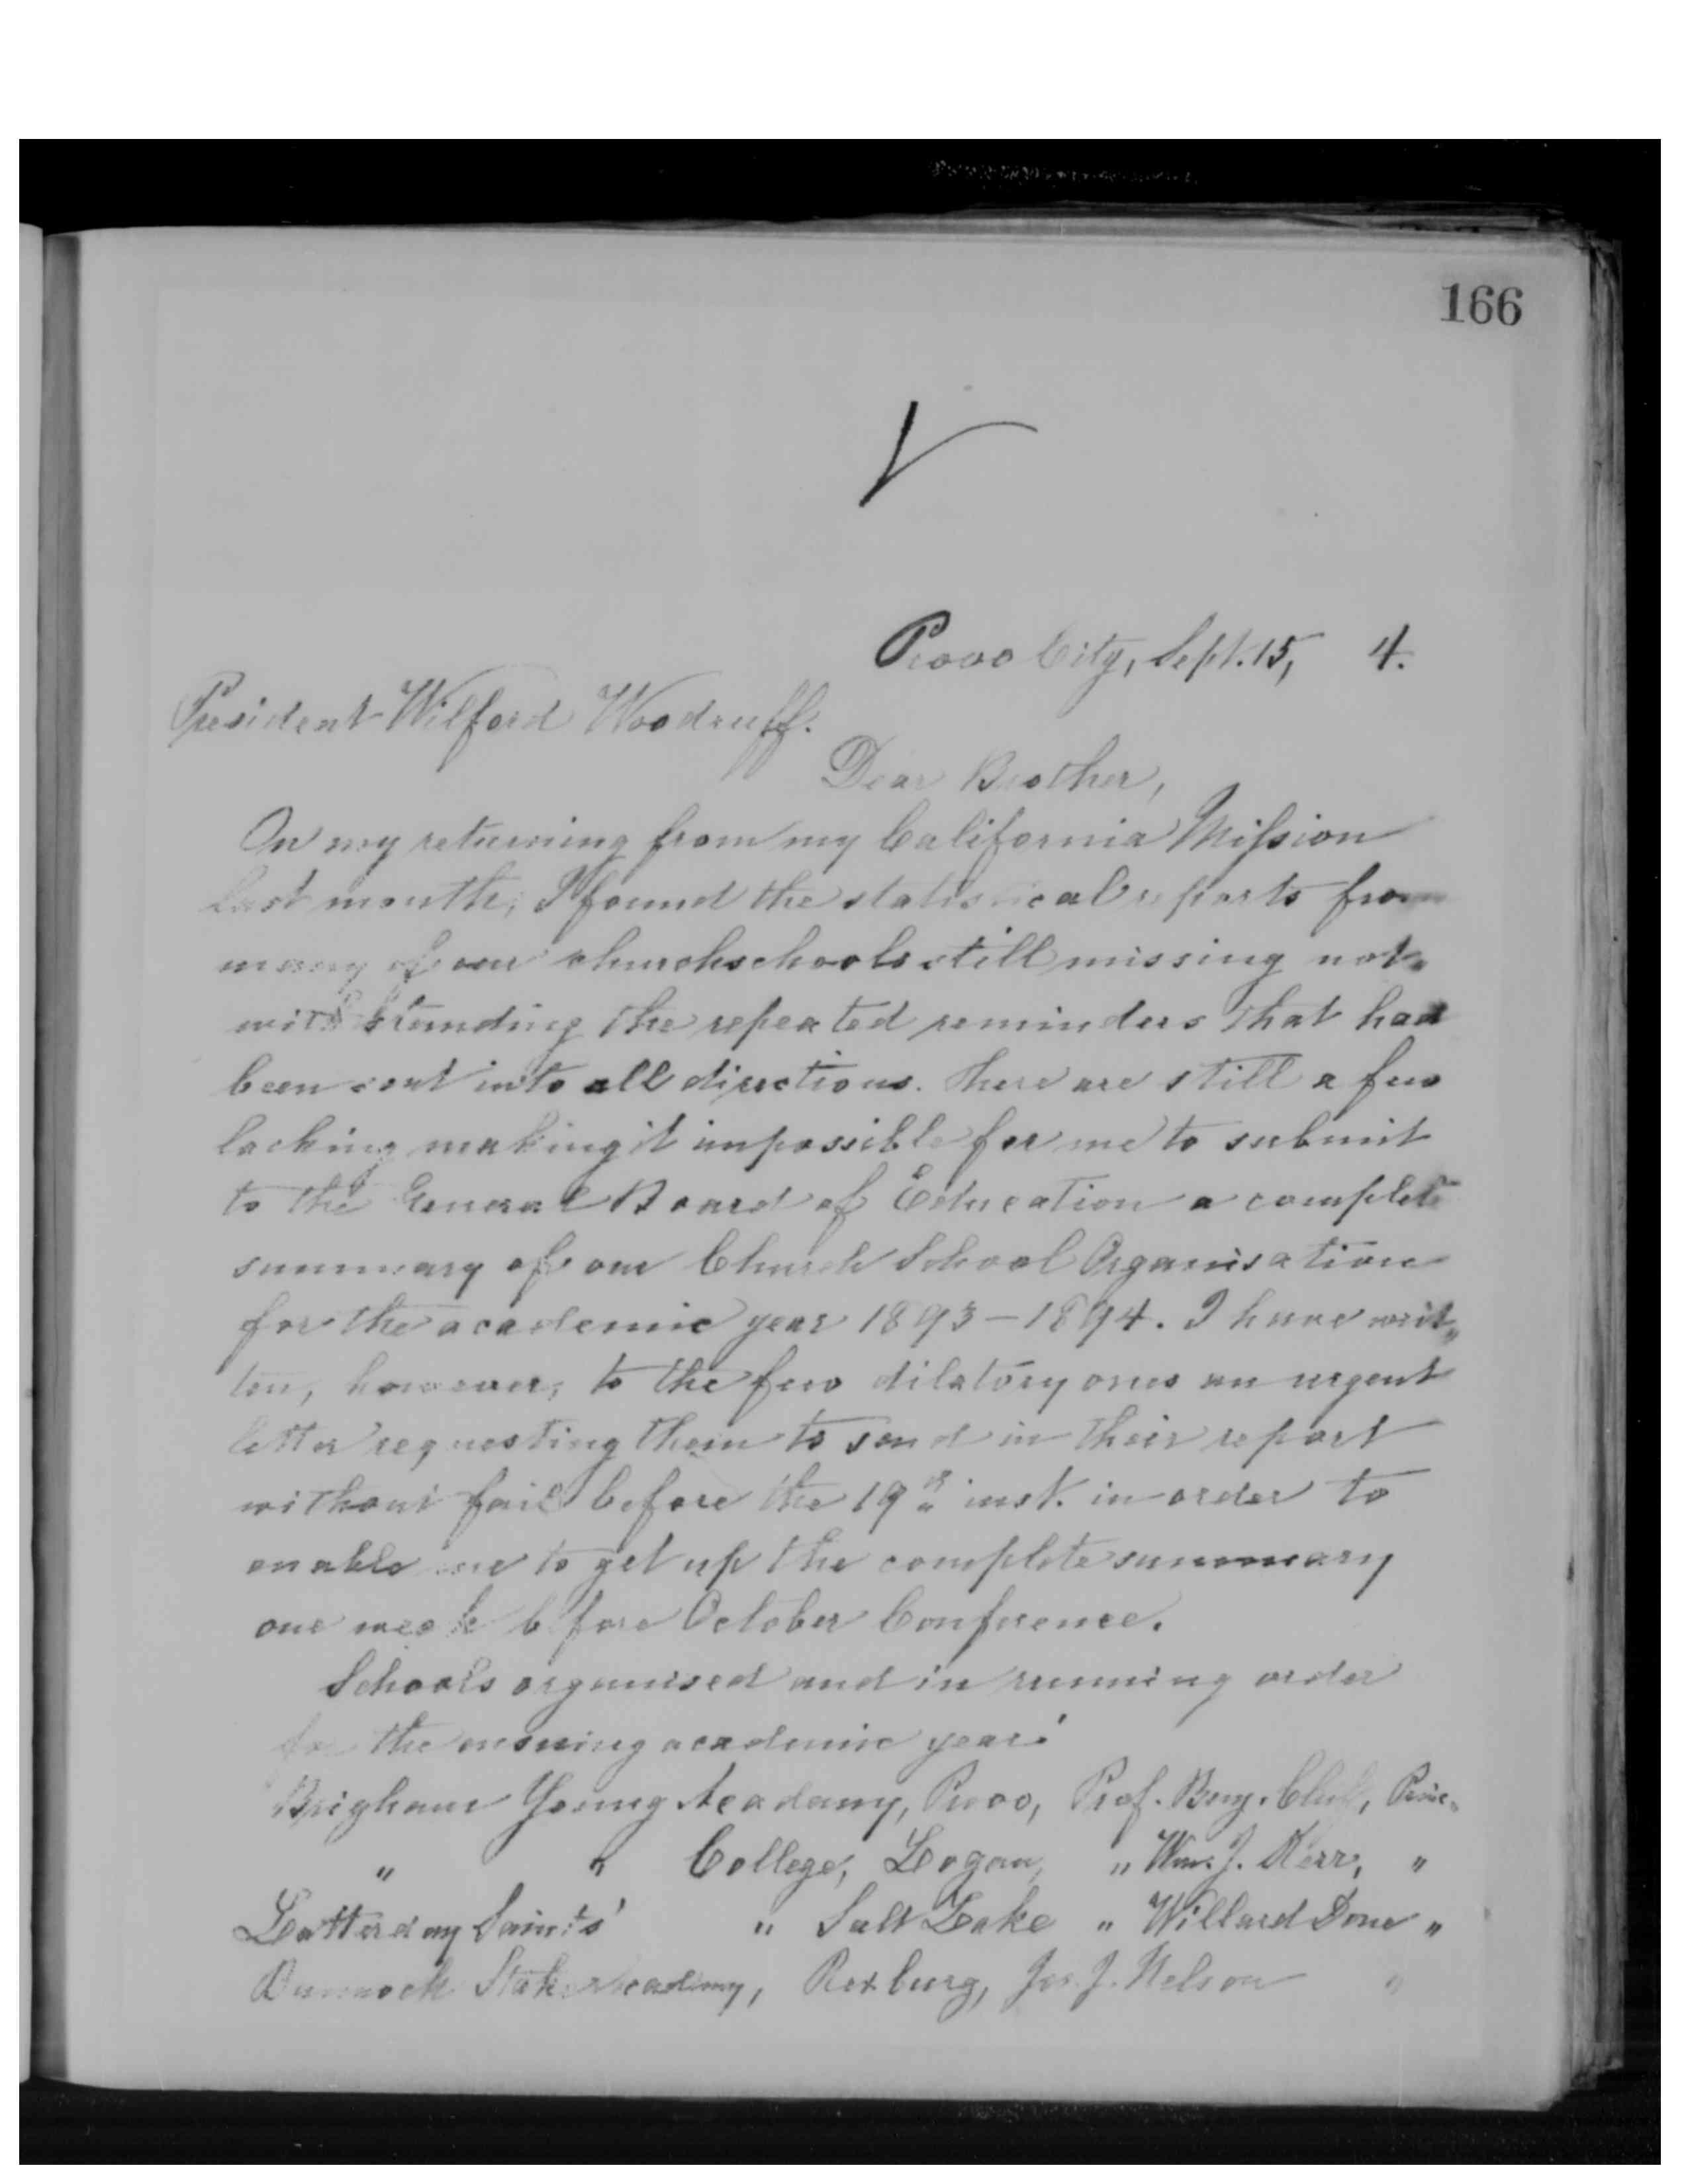 166
Provo City, Sept. 15, 4.
President Wilford Woodruff.
Dear Brother,
On my returning from my California Mission
last month, I found the statistical reports from
many of our churchschools still missing not„
withstanding the repeated reminders that had
been sent into all directions. There are still a few
lacking making it impossible for me to submit
to the General Board of Education a complete
summary of our Church School Organisation
for the academic year 1893–1894. I have writ„
ten, however, to the few dilatory ones an urgent
letter requesting them to send in their report
without fail before the 19th inst. in order to
enable me to get up the complete summary
one week before October Conference.
Schools organised and in running order
for the ensuing academic year:
Brigham Young Academy, Provo, Prof. Benj. Cluff, Princ.
" " College, Logan, " Wm. J. Kerr, "
Latterday Saints' " Salt Lake " Willard Done "
Bannock Stake Academy, Rexburg, Jos. J. Nelson "